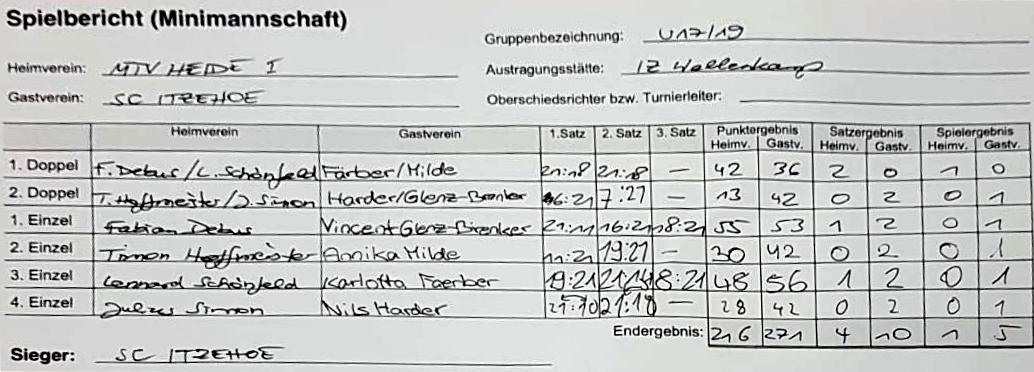 Spielbericht (Minimannschaft)
Gruppenbezeichnung: U17/19
Heimverein: MTV HEIDE I
Austragungsstätte: IZ Wellenkamp
Gastverein: SC ITZEHOE
Oberschiedsrichter bzw. Turnierleiter:
Heimverein Gastverein 1.Satz 2. Satz 3. Satz Punktergebnis Satzergebnis Spielergebnis
Heimv. Gastv. Heimv. Gastv. Heimv. Gastv.
1. Doppel F. Debus/L. Schönfeld Färber/Milde 21:18 21:18 — 42 36 2 0 1 0
2. Doppel T. Hoffmeister/J. Simon Harder/Glenz-Brenker 6:21 7:21 — 13 42 0 2 0 1
1. Einzel Fabian Debus Vincent Glenz-Brenker 21:11 16:21 18:21 55 53 1 2 0 1
2. Einzel Timon Hoffmeister Annika Milde 11:21 19:21 — 30 42 0 2 0 1
3. Einzel Lennard Schönfeld Karlotta Faerber 19:21 21:14 8:21 48 56 1 2 0 1
4. Einzel Julius Simon Nils Harder — 28 42 0 2 0 1
Endergebnis: 216 271 4 10 1 5
Sieger: SC ITZEHOE